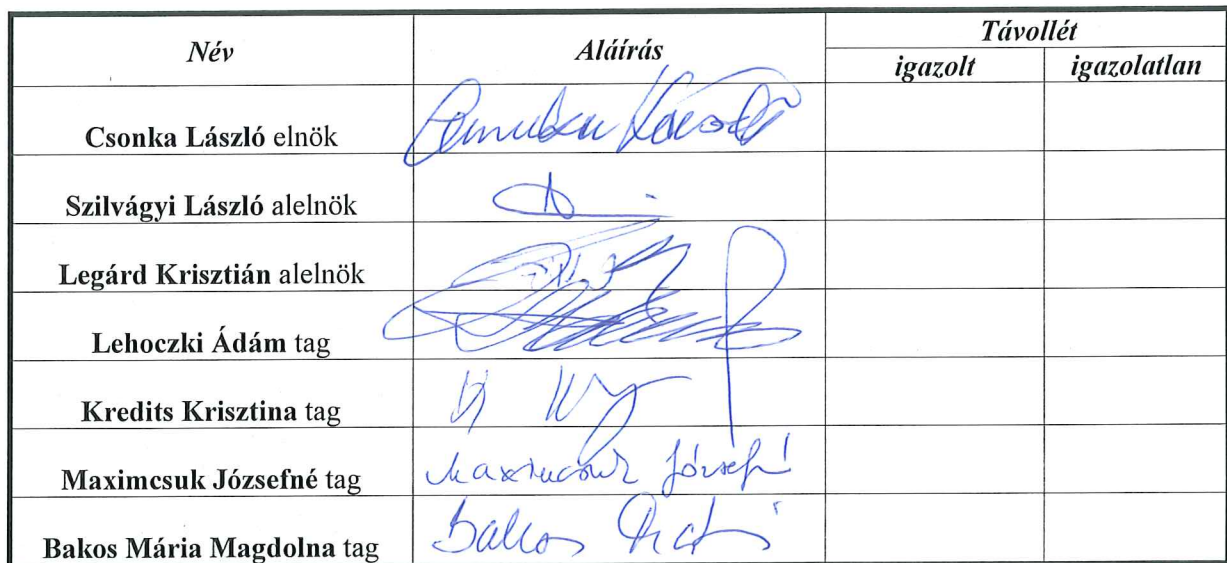 Név Aláírás Távollét
igazolt igazolatlan
Csonka László elnök
Szilvágyi László alelnök
Legárd Krisztián alelnök
Lehoczki Ádám tag
Kredits Krisztina tag
Maximcsuk Józsefné tag Maximcsuk Józsefné
Bakos Mária Magdolna tag Bakos